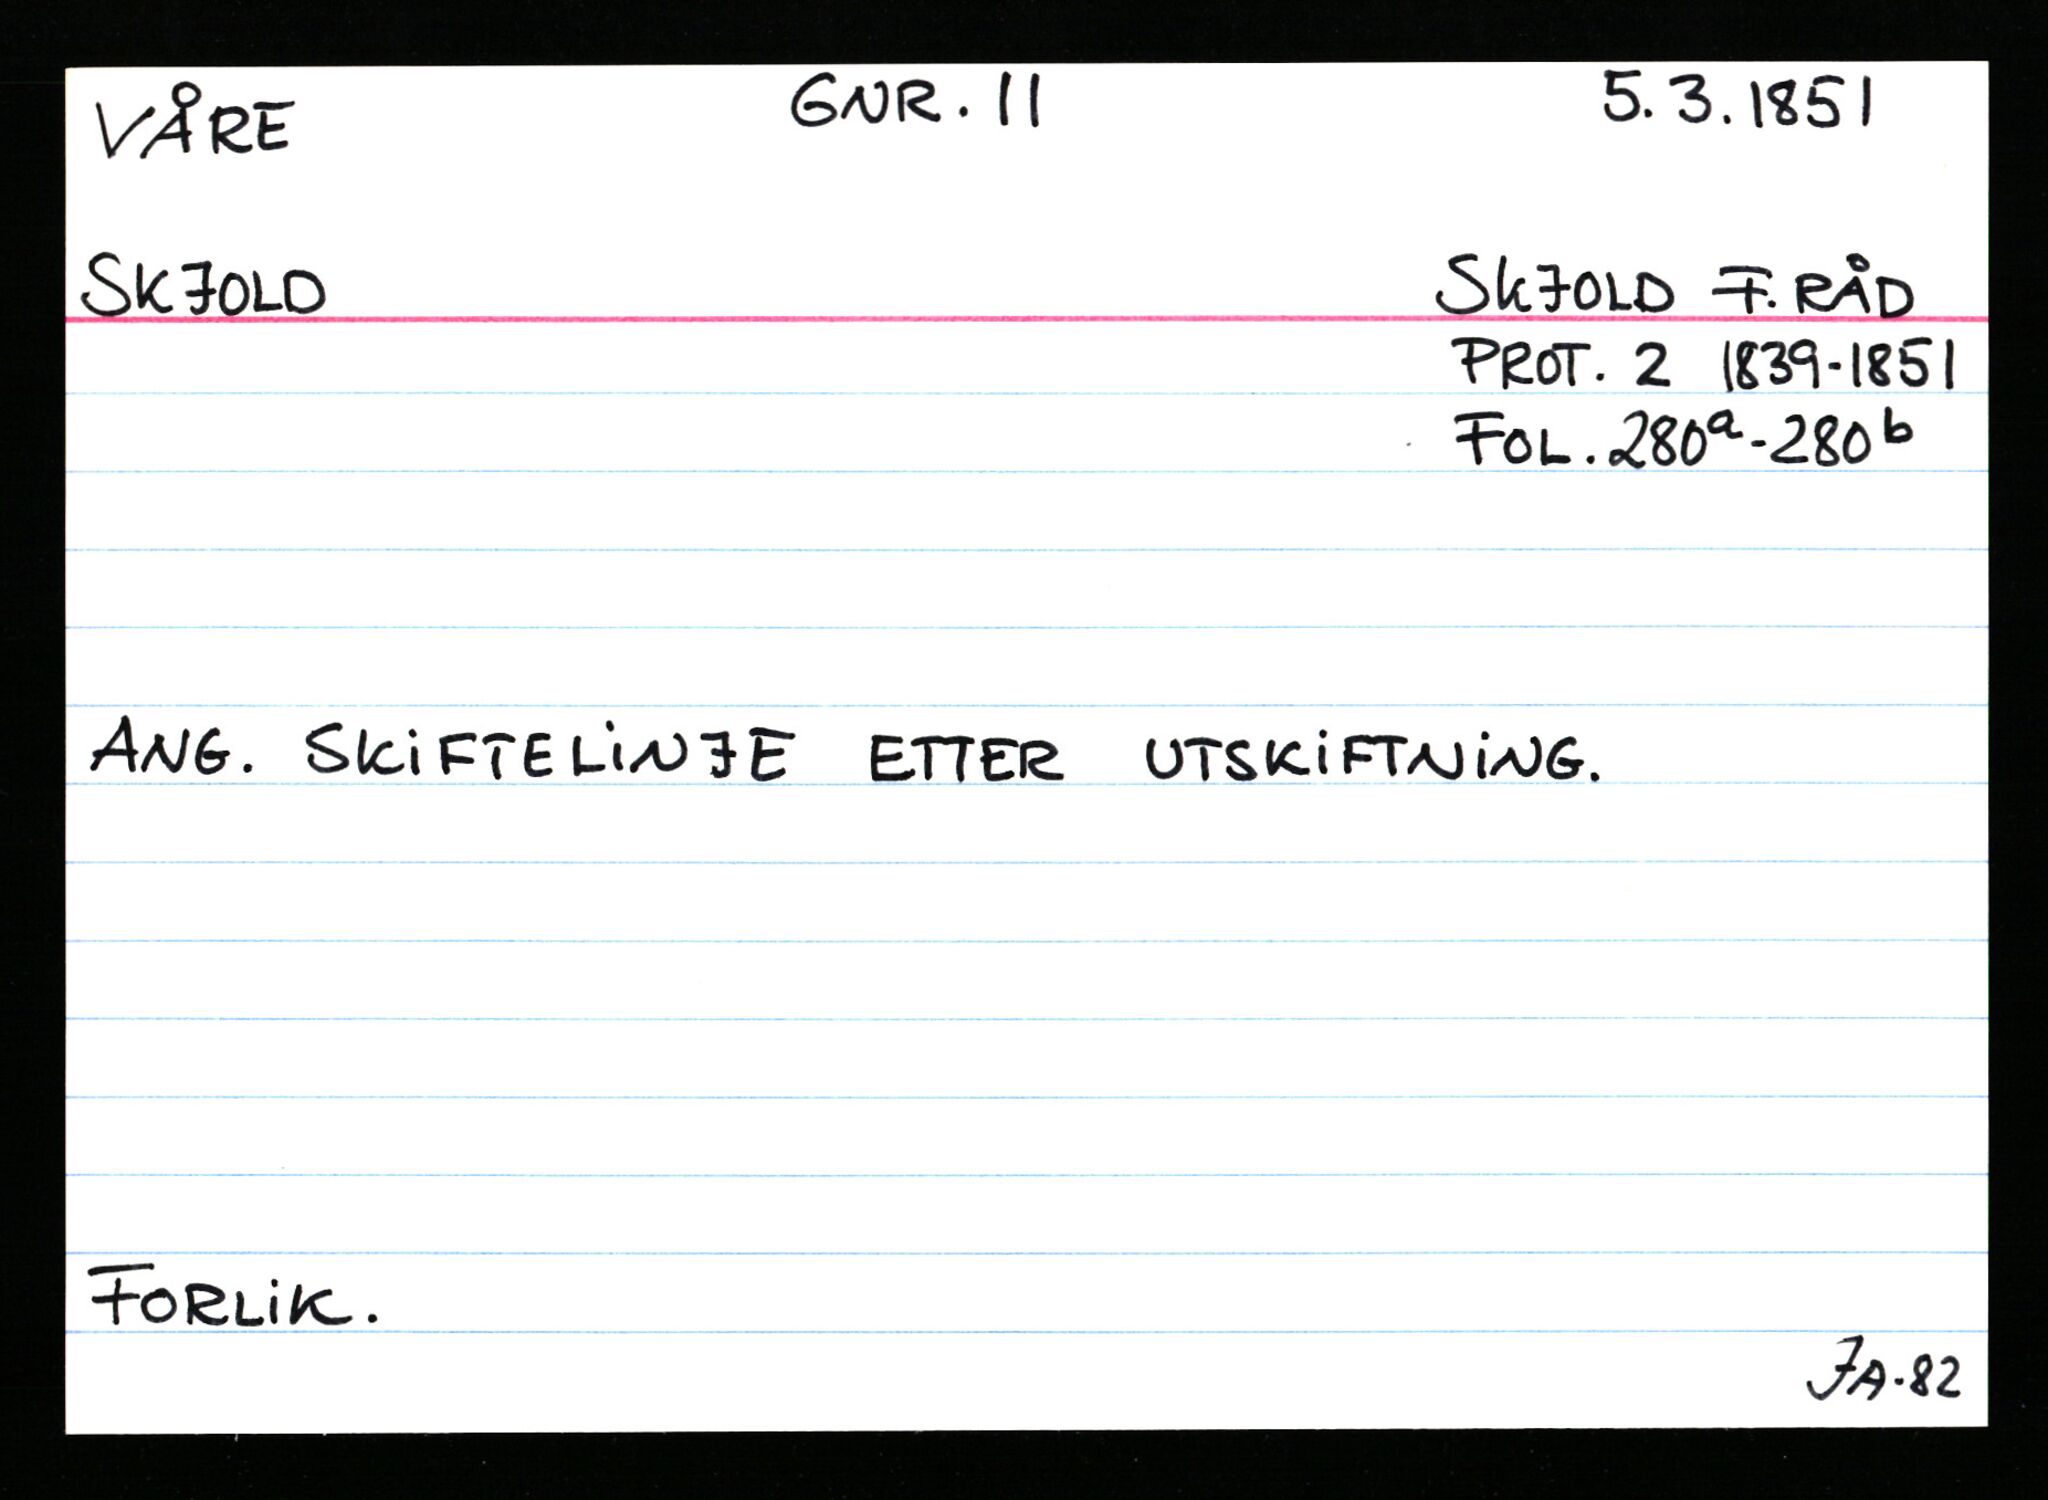 VÅRE GNR. 11 5.3.1851
SKJOLD SKJOLD F. RÅD
PROT. 2 1839-1851
FOL. 280a-280b
ANG. SKiFTELiNJE ETTER UTSKiFTNiNG.
FORLiK.
JA-82